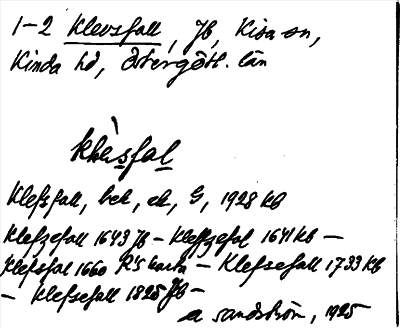 1-2 Klevsfall, Jb, Kisa sn,
Kinda hd, Östergötl. län
klèsfal
Klefsfall, bek, ek, G, 1928 kb
Klefzefall 1643 Jb - Kleffzefal 1641 kb -
Klefsfal 1660 R's karta - Klefsefall 1733 kb
- Klefsefall 1825 Jb -
a Sandström, 1925